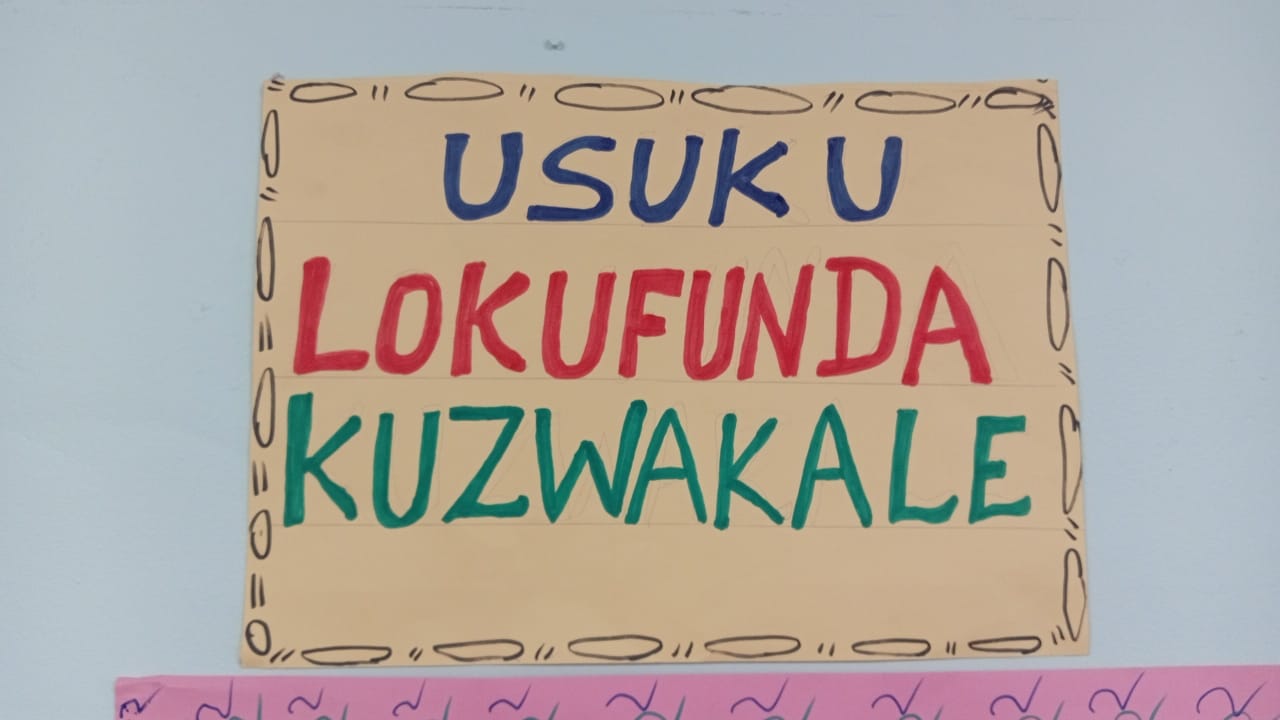 USUKU
LOKUFUNDA
KUZWAKALE